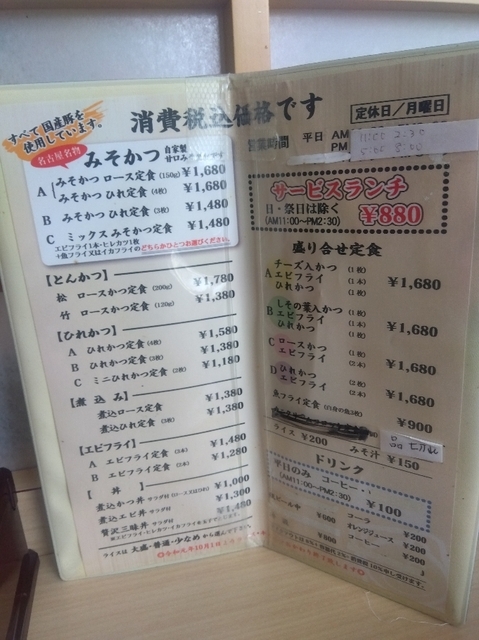 すべて国産豚を
使用しています。
消費税込価格です
定休日／月曜日
営業時間 平日 AM
PM
名古屋名物
みそかつ 自家製
A みそかつ ロース定食 (150g) ¥1,680
みそかつ ひれ定食 (4枚) ¥1,680
B みそかつ ひれ定食 (3枚) ¥1,480
C ミックス みそかつ定食 ¥1,480
エビフライ1本・ヒレカツ1枚
+魚フライ又はイカフライのどちらかひとつお選びください。
【とんかつ】
松 ロースかつ定食 (200g) ¥1,780
竹 ロースかつ定食 (120g) ¥1,380
【ひれかつ】
A ひれかつ定食 (4枚) ¥1,580
B ひれかつ定食 (3枚) ¥1,380
C ミニひれかつ定食 (2枚) ¥1,180
【煮込み】
煮込ロース定食 ¥1,380
煮込ひれ定食 (3枚) ¥1,380
【エビフライ】
A エビフライ定食 (3本) ¥1,480
B エビフライ定食 (2本) ¥1,280
【丼】
煮込かつ丼 サラダ付 ¥1,000
煮込エビ丼 サラダ付 ¥1,300
贅沢三昧丼 サラダ付 ¥1,480
ライスは 大盛・普通・少なめ から選んで下さい
サービスランチ
日・祭日は除く
(AM11:00〜PM2:30) ¥880
盛り合せ定食
A チーズ入かつ (1枚)
エビフライ (1本)
ひれかつ (1枚)
¥1,680
B しその葉入かつ (1枚)
エビフライ (1本)
ひれかつ (1枚)
¥1,680
C ロースかつ (1枚)
エビフライ (2本)
¥1,680
D ひれかつ (2枚)
エビフライ (2本)
¥1,680
魚フライ定食 (白身の魚3枚) ¥900
ライス ¥200 みそ汁 ¥150
ドリンク
平日のみ コーヒー
(AM11:00〜PM2:30) ¥100
¥600 コーラ ¥200
オレンジジュース ¥200
¥800 コーヒー ¥200